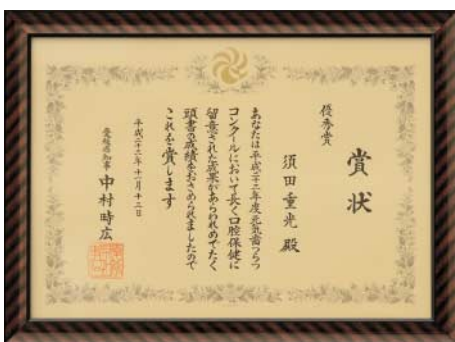 賞状
優秀賞
須田重光 殿
あなたは平成二十二年度元気歯つらつ
コンクールにおいて長く口腔保健に
留意された成果があらわれめでたく
頭書の成績をおさめられましたので
これを賞します
平成二十二年十一月十二日
愛媛県知事 中村時広